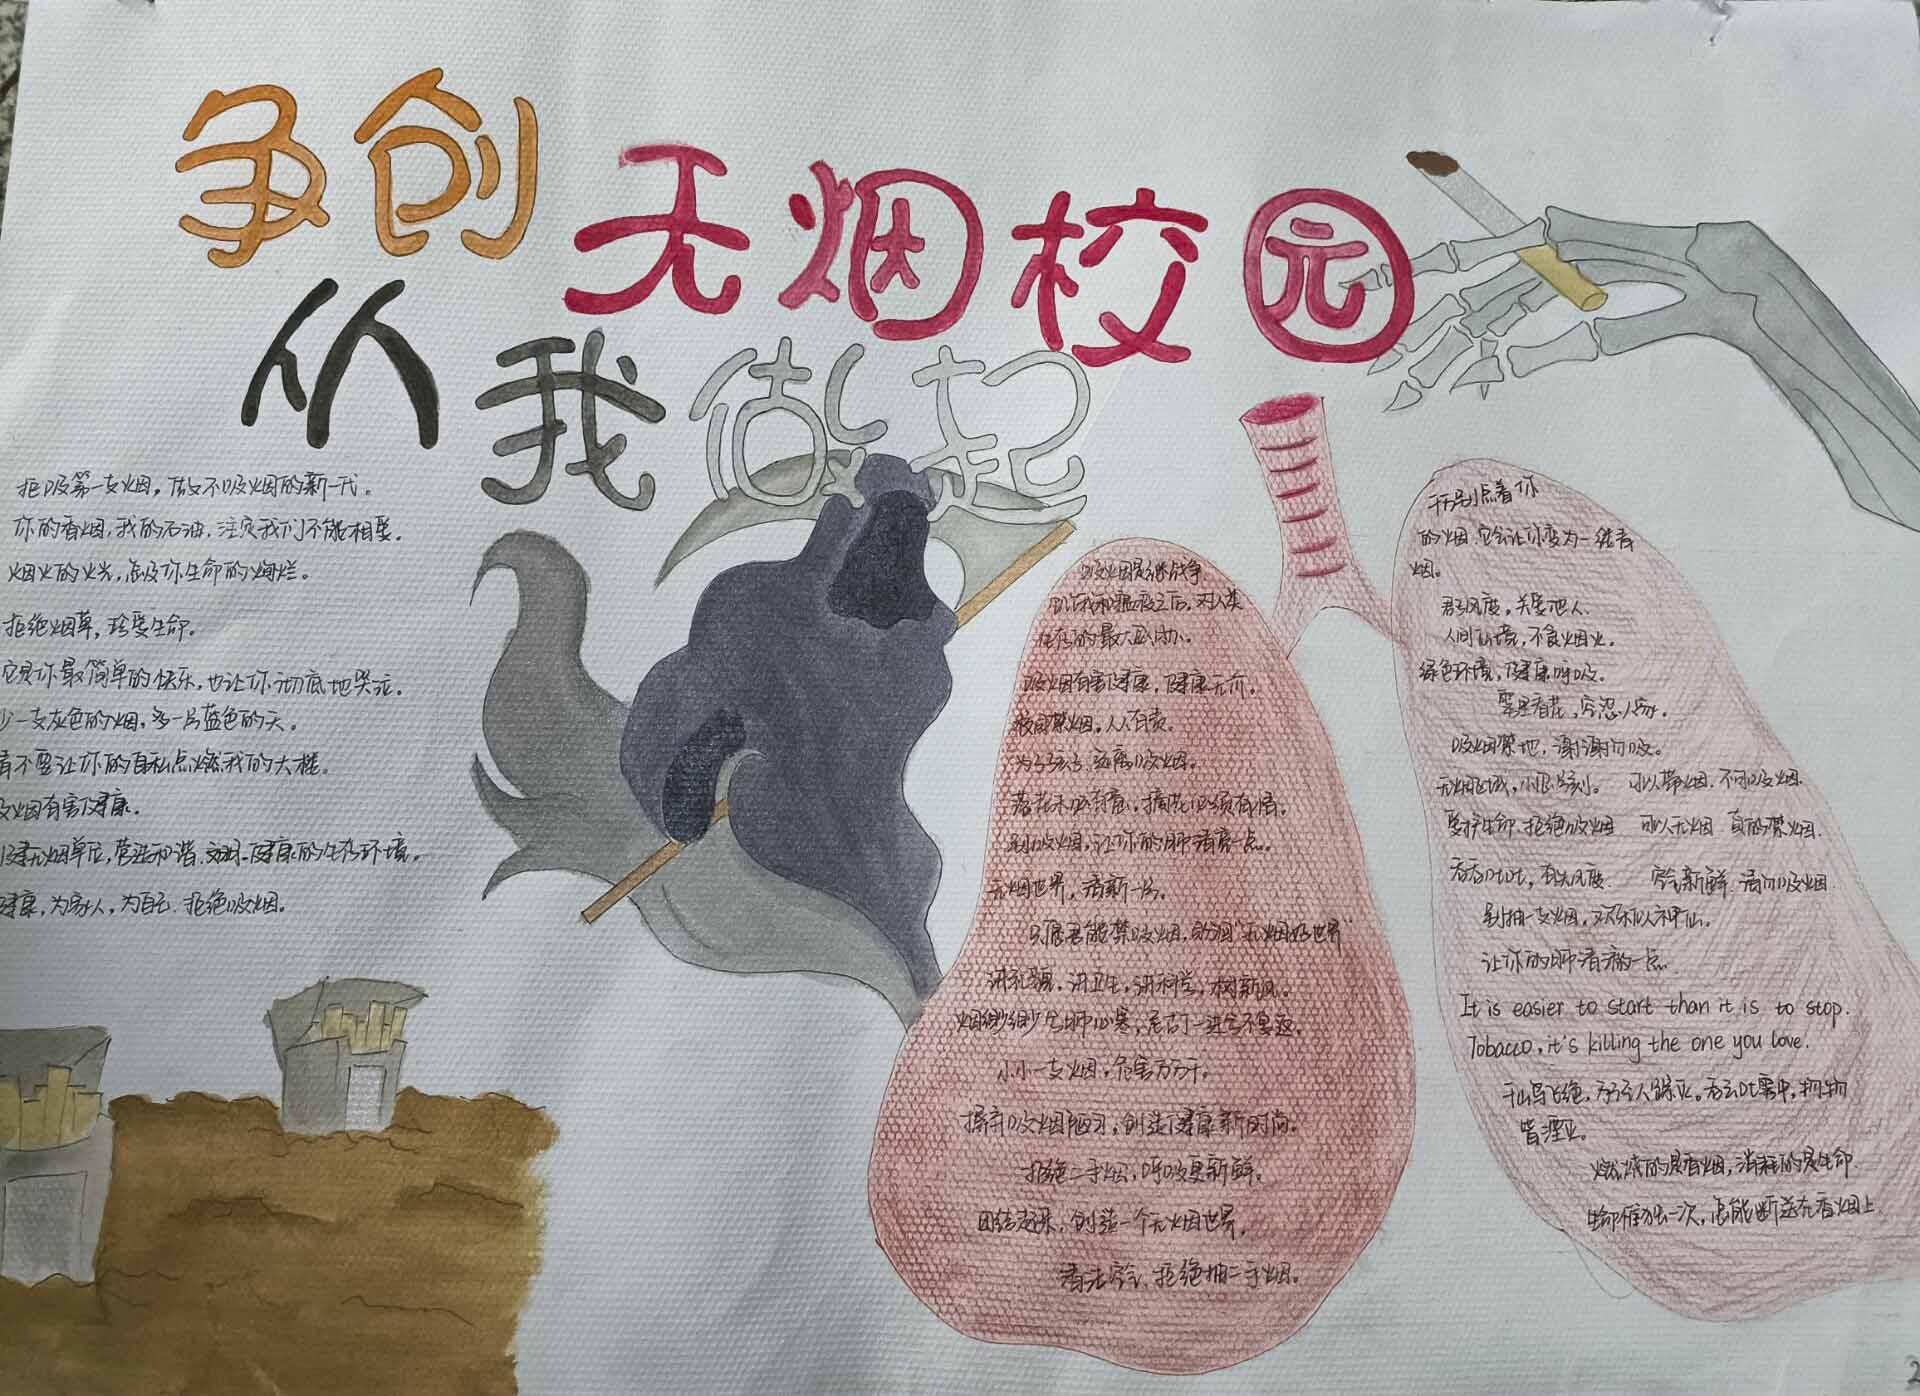 争创
无烟校园
从我做起
拒吸第一支烟，做不吸烟的新一代。
你的香烟，我的石油，注定我们不能相聚。
烟火的火光，怎及你生命的绚烂。
拒绝烟草，珍爱生命。
它是你最简单的快乐，也让你彻底地哭泣。
少一支灰色的烟，多一片蓝色的天。
不要让你的自私点燃我的大楼。
吸烟有害健康。
无烟单位，营造和谐、文明、健康的生存环境。
健康，为家人，为自己，拒绝吸烟。
吸烟是继战争
饥饿和瘟疫之后，对人类
生存的最大威胁。
吸烟有害健康，健康无价。
校园禁烟，人人有责。
为了孩子，远离吸烟。
落花未必有意，摘花必须有情。
别吸烟，让你的肺清爽一点。
无烟世界，清新一片。
只愿君能禁吸烟，的润“无烟好世界”
讲礼貌，讲卫生，讲科学，树新风。
烟缈缈兮肺心寒，尼古丁一进兮不复返。
小小一支烟，危害万万千。
摒弃吸烟陋习，创造健康新时尚。
拒绝二手烟，呼吸更新鲜。
团结起来，创造一个无烟世界。
清洁空气，拒绝抽二手烟。
千万别点着你
的烟，它会让你变为一缕青
烟。
君子风度，关爱他人。
人间仙境，不食烟火。
绿色环境，健康呼吸。
吸烟禁地，谢谢勿吸。
可以带烟，不可吸烟
爱护生命，拒绝吸烟
可以无烟，真的禁烟
吞吞吐吐，有失风度
空气新鲜，请勿吸烟
别抽一支烟，欢乐似神仙。
让你的肺清爽一点
It is easier to start than it is to stop.
Tobacco, it's killing the one you love.
千山鸟飞绝，万径人踪灭。吞云吐雾中，物物
皆湮灭。
燃烧的是香烟，消耗的是生命
生命仅独一次，怎能断送在香烟上